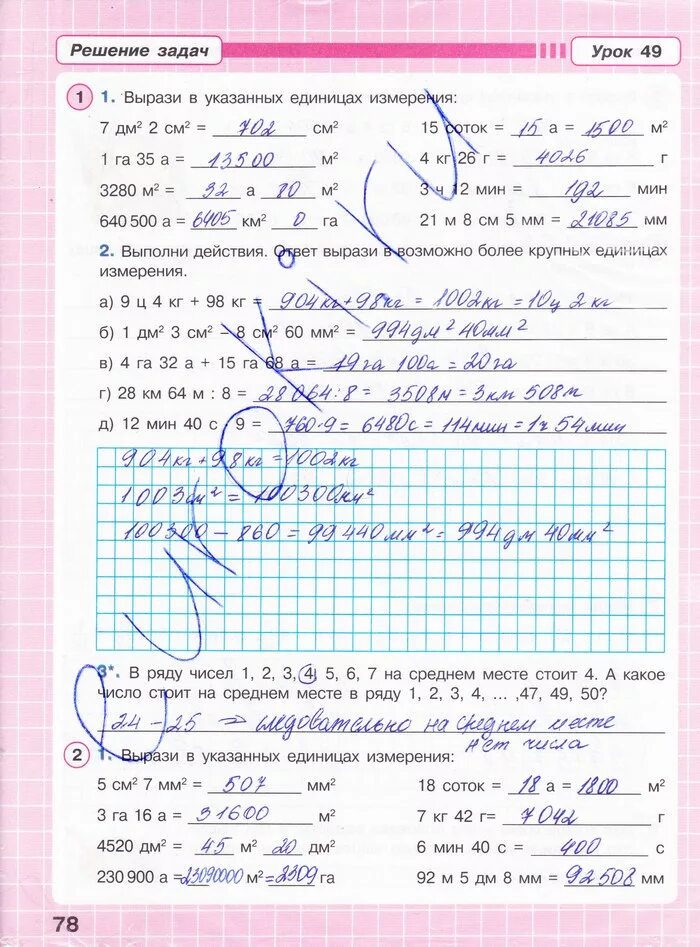 Решение задач Урок 49
1 1. Вырази в указанных единицах измерения:
7 дм² 2 см² = 702 см² 15 соток = 15 а = 1500 м²
1 га 35 а = 13500 м² 4 кг 26 г = 4026 г
3280 м² = 32 а 80 м² 3 ч 12 мин = 192 мин
640 500 а = 6405 км² 0 га 21 м 8 см 5 мм = 21085 мм
2. Выполни действия. Ответ вырази в возможно более крупных единицах
измерения.
а) 9 ц 4 кг + 98 кг = 904кг+98кг = 1002кг = 10ц 2кг
б) 1 дм² 3 см² – 8 см² 60 мм² = 994дм² 40мм²
в) 4 га 32 а + 15 га 68 а = 19га 100а = 20га
г) 28 км 64 м : 8 = 28064:8 = 3508м = 3км 508м
д) 12 мин 40 с · 9 = 760·9 = 6480с = 114мин = 1ч 54мин
904кг + 98кг = 1002кг
1003см² = 100300мм²
100300 – 860 = 99440мм² = 994дм 40мм²
3*. В ряду чисел 1, 2, 3, 4, 5, 6, 7 на среднем месте стоит 4. А какое
число стоит на среднем месте в ряду 1, 2, 3, 4, ... ,47, 49, 50?
24 – 25 ⇒ следовательно на среднем месте
нет числа
2 1. Вырази в указанных единицах измерения:
5 см² 7 мм² = 507 мм² 18 соток = 18 а = 1800 м²
3 га 16 а = 31600 м² 7 кг 42г= 7042 г
4520 дм² = 45 м² 20 дм² 6 мин 40 с = 400 с
230 900 а =23090000 м²=2309 га 92 м 5 дм 8 мм = 92508 мм
78